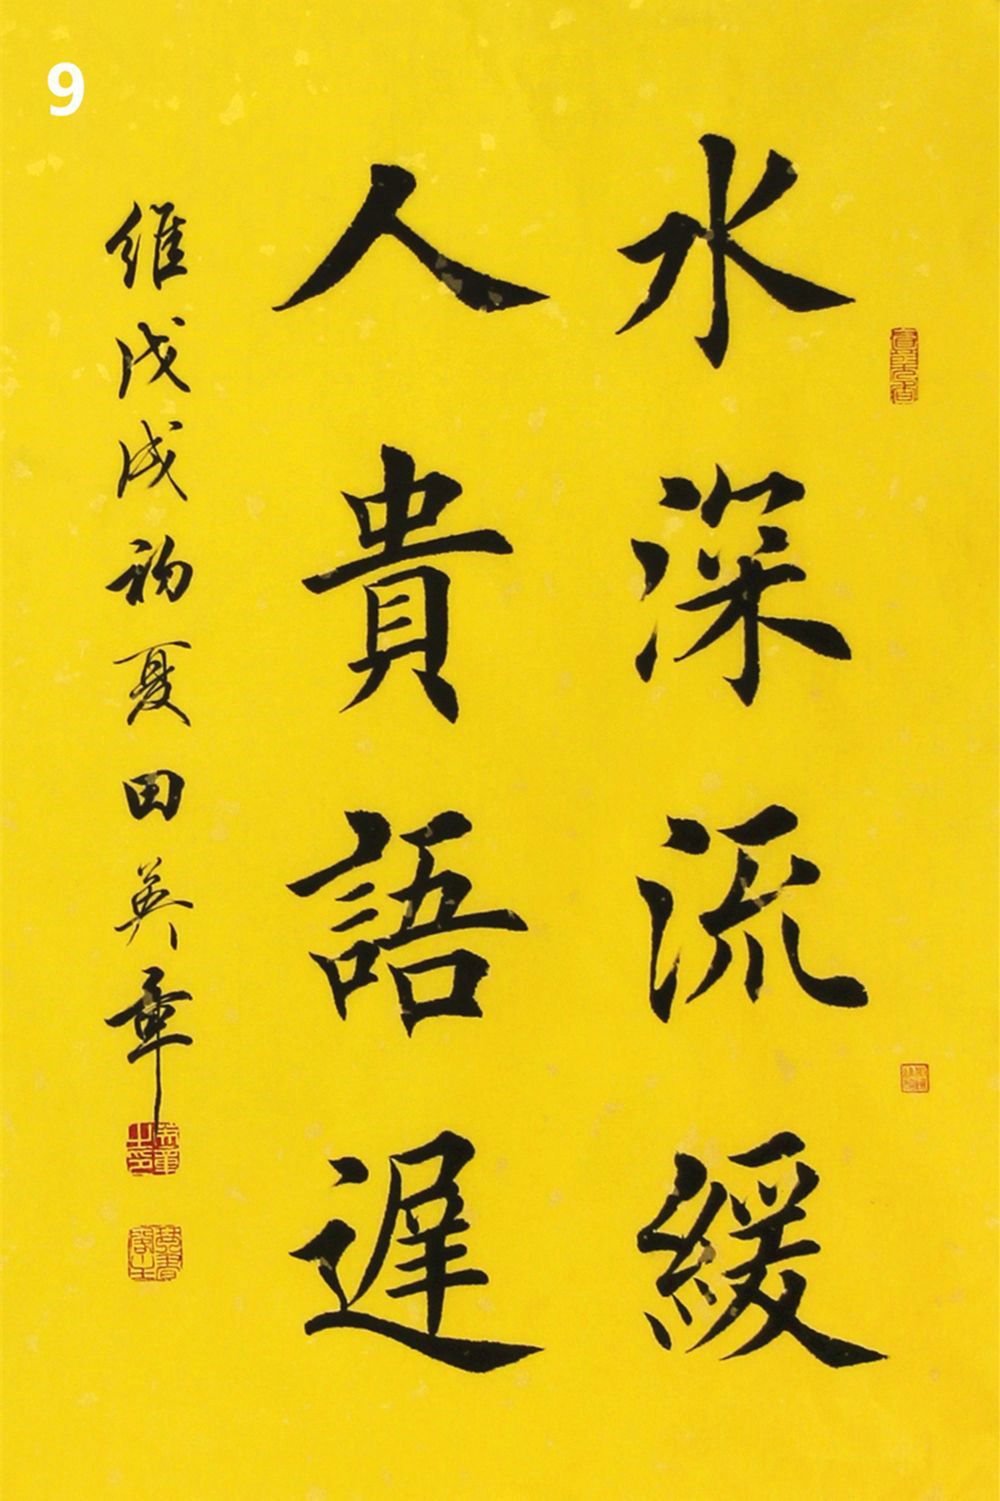 9
水深流緩
人貴語遲
維戊戌初夏田英章